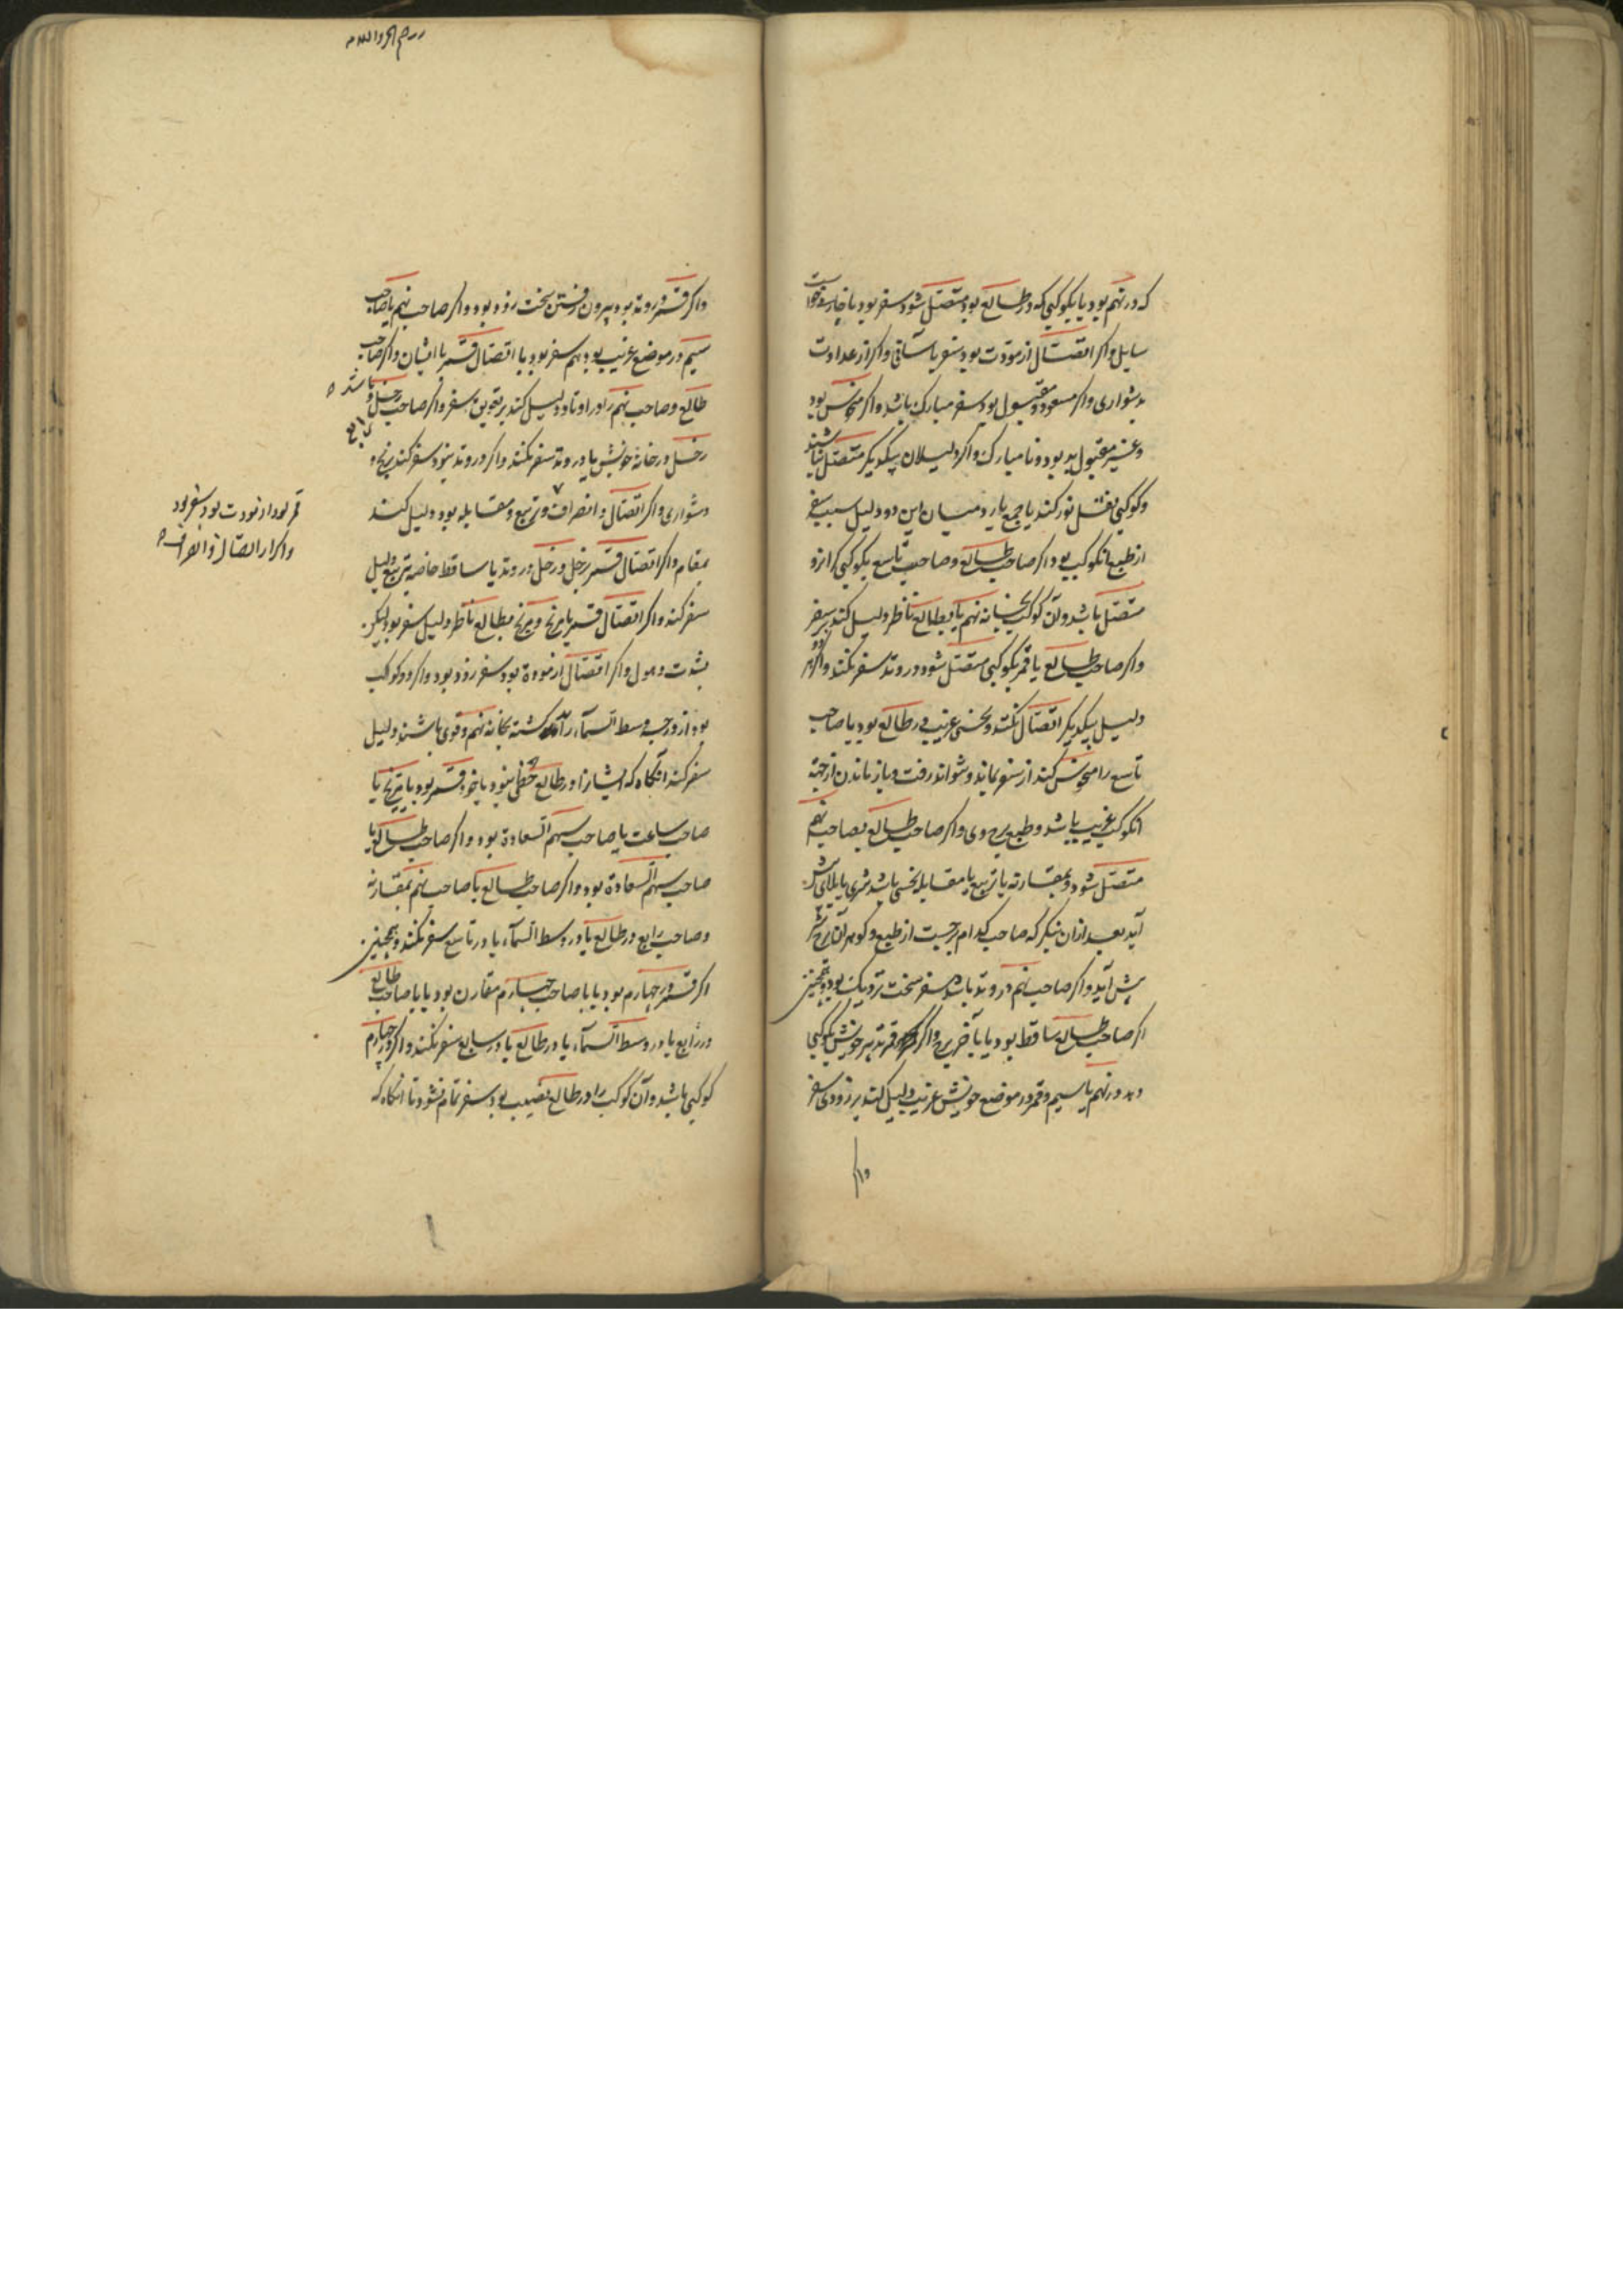 که در نهم بود یا بکوکبی که در طالع بود متصل شود سفر بود
سایل و اکر اتصال از مودت بود سفر باسانی و اکر از عداوت
بدشواری و اکر مسعود و مقبول بود سفر مبارک باشد و اکر منحوس بود
و غیر مقبول بد بود و نا مبارک و اکر دلیلان بیکدیکر متصل نباشند
و کوکبی نقل نور کند یا جمع یا رد میان این دو دلیل سبب سفر
از طبع انکوکب بود و اکر صاحب طالع و صاحب تاسع بکوکبی کرانرو
متصل باشد و آن کوکب بخانه نهم یا بطالع ناظر دلیل کند بر سفر
و اکر صاحب طالع یا قمر بکوکبی متصل شود در وتد سفر نکند و اکر دو
دلیل بیکدیکر اتصال نکند و نحسی غریب در طالع بود یا صاحب
تاسع را منحوس کند از سفر بماند و نتواند رفت و باز ماندن از جهة
انکوکب غریب باشد و طبع برج وی و اکر صاحب طالع بصاحب نهم
متصل شود و بمقارنه یا تربیع یا مقابله نحسی باشد شری یا بلایی پیش
آید بعد ازان بنکر که صاحب کدام برجست از طبع و کوهر آن برج شر
پیش آید و اکر صاحب نهم در وتد باشد سفر سخت نزدیک بود و همچنین
اکر صاحب طالع ساقط بود یا بآخر برج و اکر قمر تدبیر خویش بکوکبی
دهد در نهم یا سیم و قمر در موضع خویش غریب دلیل کند بر زودی سفر
و اکر
و اکر قمر در وتد بود بیرون رفتن سخت زود بود و اکر صاحب نهم یا صاحب
سیم در موضع غریب بود هم سفر بود با اتصال قمر با ایشان و اکر صاحب
طالع و صاحب نهم را در اوتاد دلیل کند بر تعویق سفر و اکر صاحب زحل و
زحل در خانه خویش یا در وتد سفر نکند و اکر در وتد نبود سفر کند برنج و
دشواری و اکر اتصال و انصراف و تربیع و مقابله بود دلیل کند
بمقام و اکر اتصال قمر بزحل و زحل در وتد یا ساقط خاصه بتربیع دلیل
سفر کند و اکر اتصال قمر با مریخ و مریخ بطالع ناظر دلیل سفر بود لیکن
بشدت و هول و اکر اتصال از مودة بود سفر زود بود و اکر دو کوکب
بود از درجه وسط السماء در کذشته بخانه نهم و قوی باشند دلیل
سفر کند آنکاه که ایشانرا در طالع حظی بود یا خود قمر بود یا مریخ یا
صاحب ساعت یا صاحب سهم السعادة بود و اکر صاحب طالع یا
صاحب سهم السعادة بود و اکر صاحب طالع یا صاحب نهم بمقارنه
و صاحب رابع در طالع یا در وسط السماء یا در تاسع سفر نکند و همچنین
اکر قمر در چهارم بود یا با صاحب چهارم مقارن بود یا با صاحب طالع
در رابع یا در وسط السماء یا در طالع یا در سابع سفر نکند و اکر در چهارم
کوکبی باشد و آن کوکب را در طالع نصیب بود سفر تمام نشود تا آنکاه که
قمر بود از مودت بود سفر بود
و اکر از اتصال و انصراف